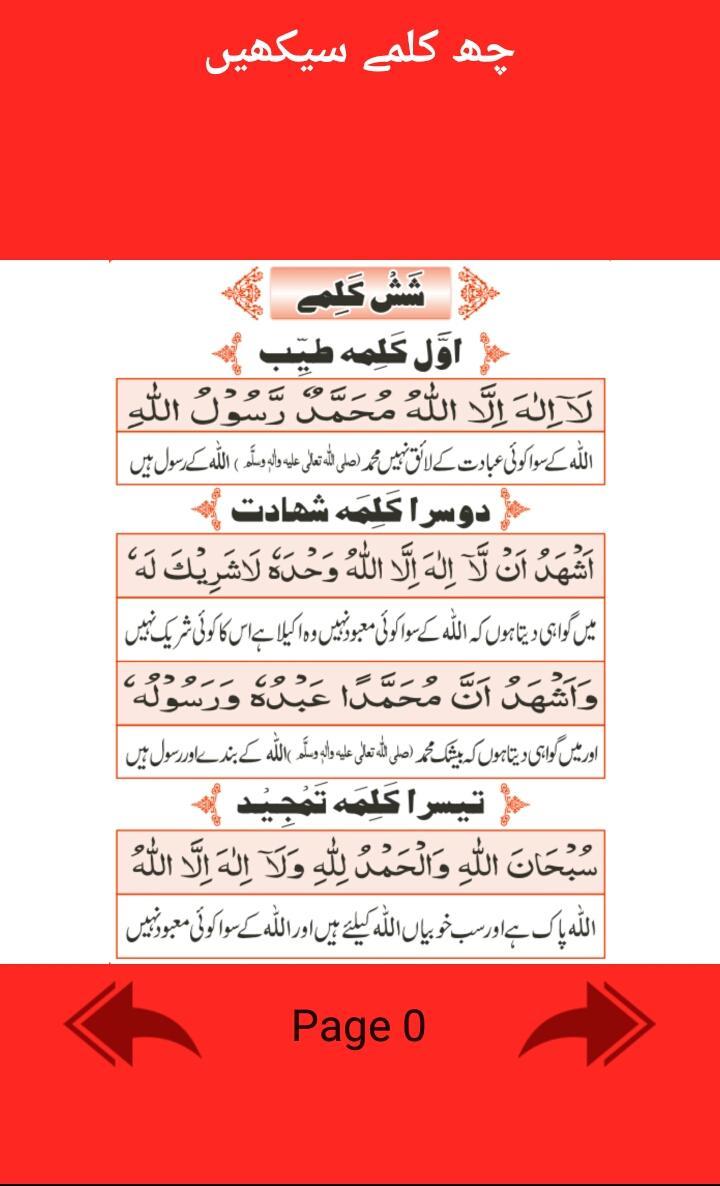 چھ کلمے سیکھیں
شَشْ کَلِمے
اوَّل کَلِمه طیِّب
لَآ اِلٰهَ اِلَّا اللّٰهُ مُحَمَّدٌ رَّسُوْلُ اللّٰهِ
اللّٰه کے سوا کوئی عبادت کے لائق نہیں محمد (صلی اللہ تعالٰی علیہ واٰلہٖ وسلَّم) اللّٰه کے رسول ہیں
دوسرا کَلِمَه شهادت
اَشْهَدُ اَنْ لَّآ اِلٰهَ اِلَّا اللّٰهُ وَحْدَهٗ لَاشَرِيْكَ لَهٗ
میں گواہی دیتا ہوں کہ اللّٰه کے سوا کوئی معبود نہیں وہ اکیلا ہے اس کا کوئی شریک نہیں
وَاَشْهَدُ اَنَّ مُحَمَّدًا عَبْدُهٗ وَرَسُوْلُهٗ
اور میں گواہی دیتا ہوں کہ بیشک محمد (صلی اللہ تعالٰی علیہ واٰلہٖ وسلَّم) اللّٰه کے بندے اور رسول ہیں
تیسرا کَلِمَه تَمْجِیْد
سُبْحَانَ اللّٰهِ وَالْحَمْدُ لِلّٰهِ وَلَآ اِلٰهَ اِلَّا اللّٰهُ
اللّٰه پاک ہے اور سب خوبیاں اللّٰه کیلئے ہیں اور اللّٰه کے سوا کوئی معبود نہیں
Page 0